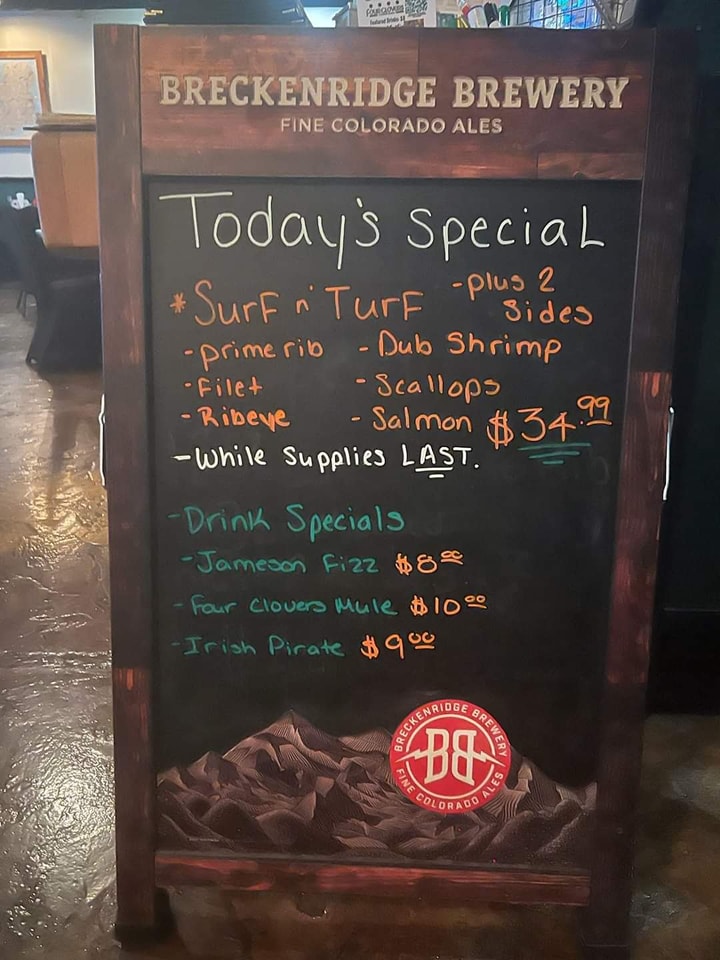 FOURCLOVERS
BRECKENRIDGE BREWERY
FINE COLORADO ALES
Today's Special
* Surf n' Turf -plus 2 Sides
-prime rib -Dub Shrimp
-Filet -Scallops
-Ribeye -Salmon $34.99
-While Supplies LAST.
-Drink Specials
-Jameson Fizz $8.00
-Four Clovers Mule $10.00
-Irish Pirate $9.00
BRECKENRIDGE BREWERY
BB
FINE COLORADO ALES